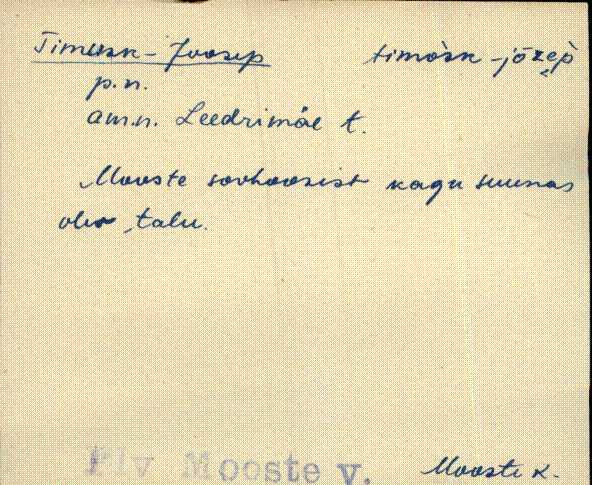 Timusk-Joosep timòsk-jōzep̀
p.n.
am.n. Leedrimäe t.
Mooste sovhoosist kagu suunas
olev talu.
Plv Mooste v. Mooste k.